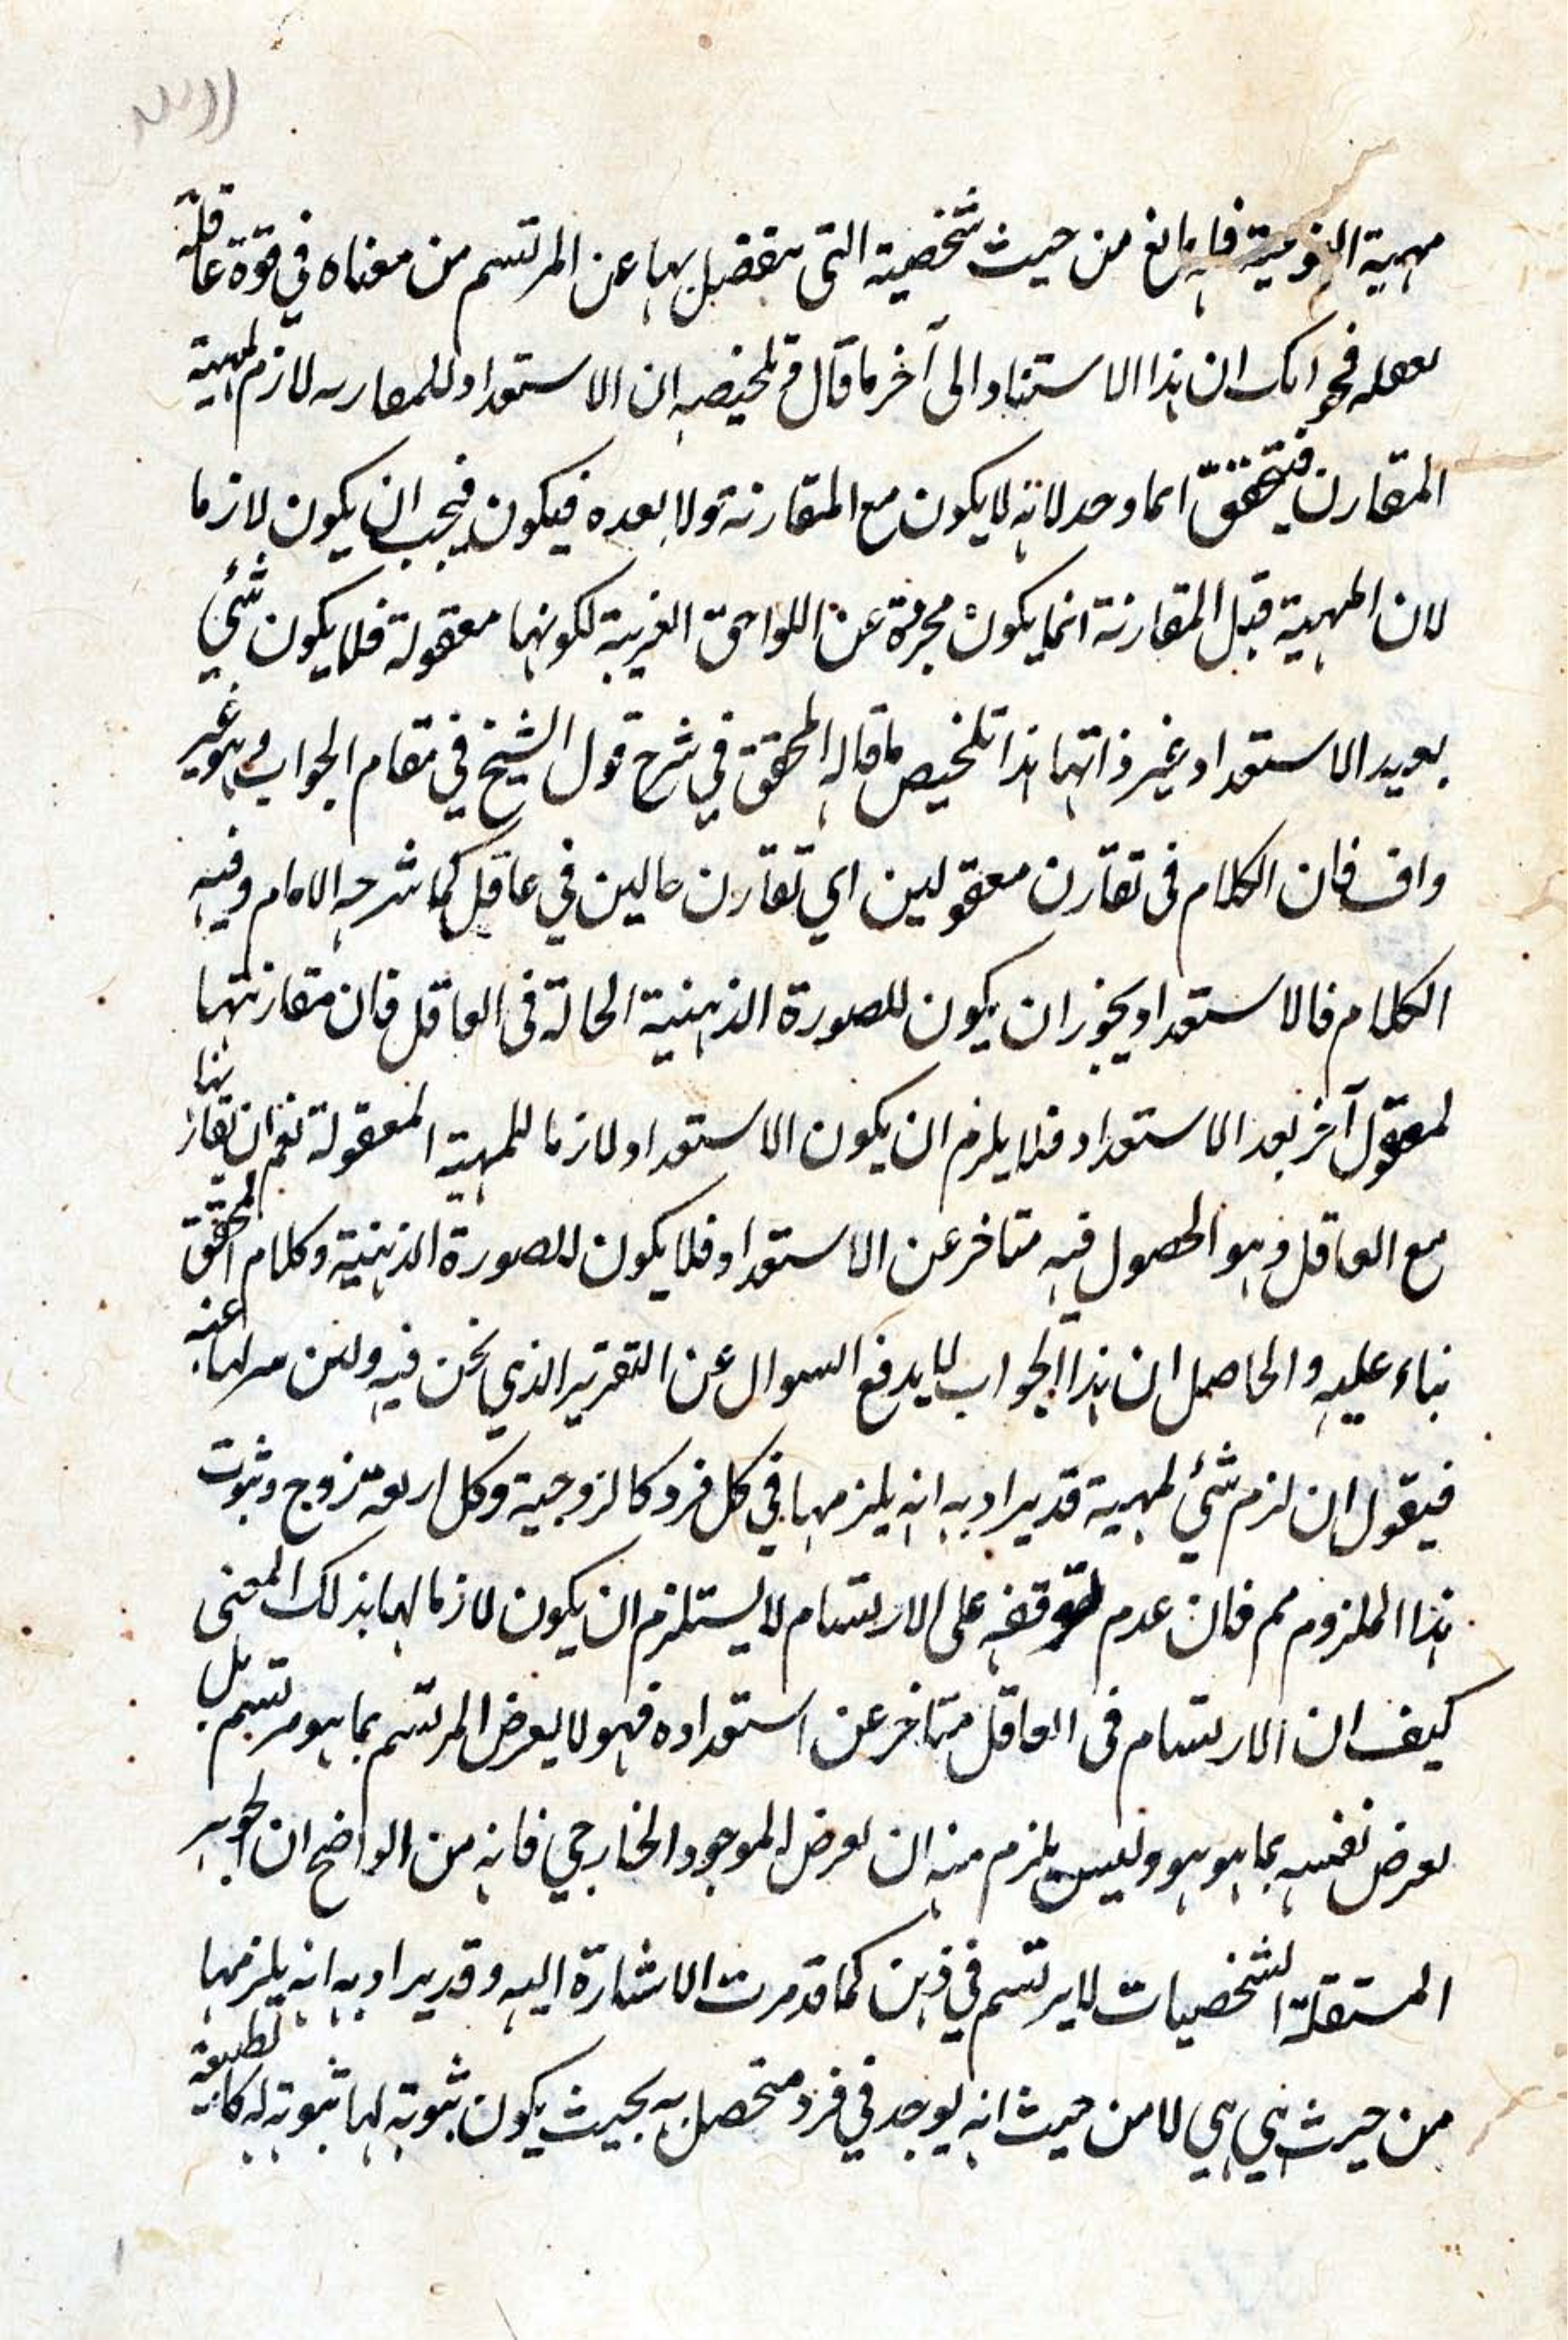 مهية النوعية فله مانع من حيث شخصية التى ينفصل بها عن المرتسم من معناه في قوة عاقلة
فجوابك ان هذا الاستناد الى آخر ما قال تلخيصه ان الاستعداد للمقارنه لازم لمهية
المقارن فيتحقق اينما وجد لانه لا يكون مع المقارنة ولا بعده فيكون فيجب ان يكون لازما
لان المهية قبل المقارنة انما يكون مجردة عن اللواحق الغريبة لكونها معقولة فلا يكون شئ
يفيد الاستعداد غير ذاتها هذا تلخيص ما قاله المحقق في شرح قول الشيخ في مقام الجواب وهو غير
واف فان الكلام فى تقارن معقولين اي تقارن حالين في عاقل كما شرحه الامام وفيه
الكلام فالاستعداد يجوز ان يكون للصورة الذهنية الحالة فى العاقل فان مقارنتها
لمعقول آخر بعد الاستعداد فلا يلزم ان يكون الاستعداد لازما للمهية المعقولة نعم ان تقارنها
مع العاقل وهو الحصول فيه متاخر عن الاستعداد فلا يكون للصورة الذهنية وكلام المحقق
بناء عليه والحاصل ان هذا الجواب لا يدفع السوال عن التقرير الذي نحن فيه ولئن عنه
فيقول ان لزم شئ لمهية قد يراد به انه يلزمها في كل فرد كالزوجية وكل اربعة زوج وثبوت
هذا الملزوم مم فان عدم توقفه على الارتسام لا يستلزم ان يكون لازما لها بذلك المعنى
كيف ان الارتسام فى العاقل متاخر عن استعداده فهو لا يعرض المرتسم بما هو مرتسم بل
يعرض نفسه بما هو هو وليس يلزم منه ان يعرض الموجود الخارجي فانه من الواضح ان الجوهر
المستقلة الشخصيات لا يرتسم في ذهن كما قد مرت الاشارة اليه وقد يراد به انه يلزمها
من حيث هي هي لا من حيث انه يوجد في فرد متحصل به بحيث يكون ثبوته لها ثبوته له كالطبيعة